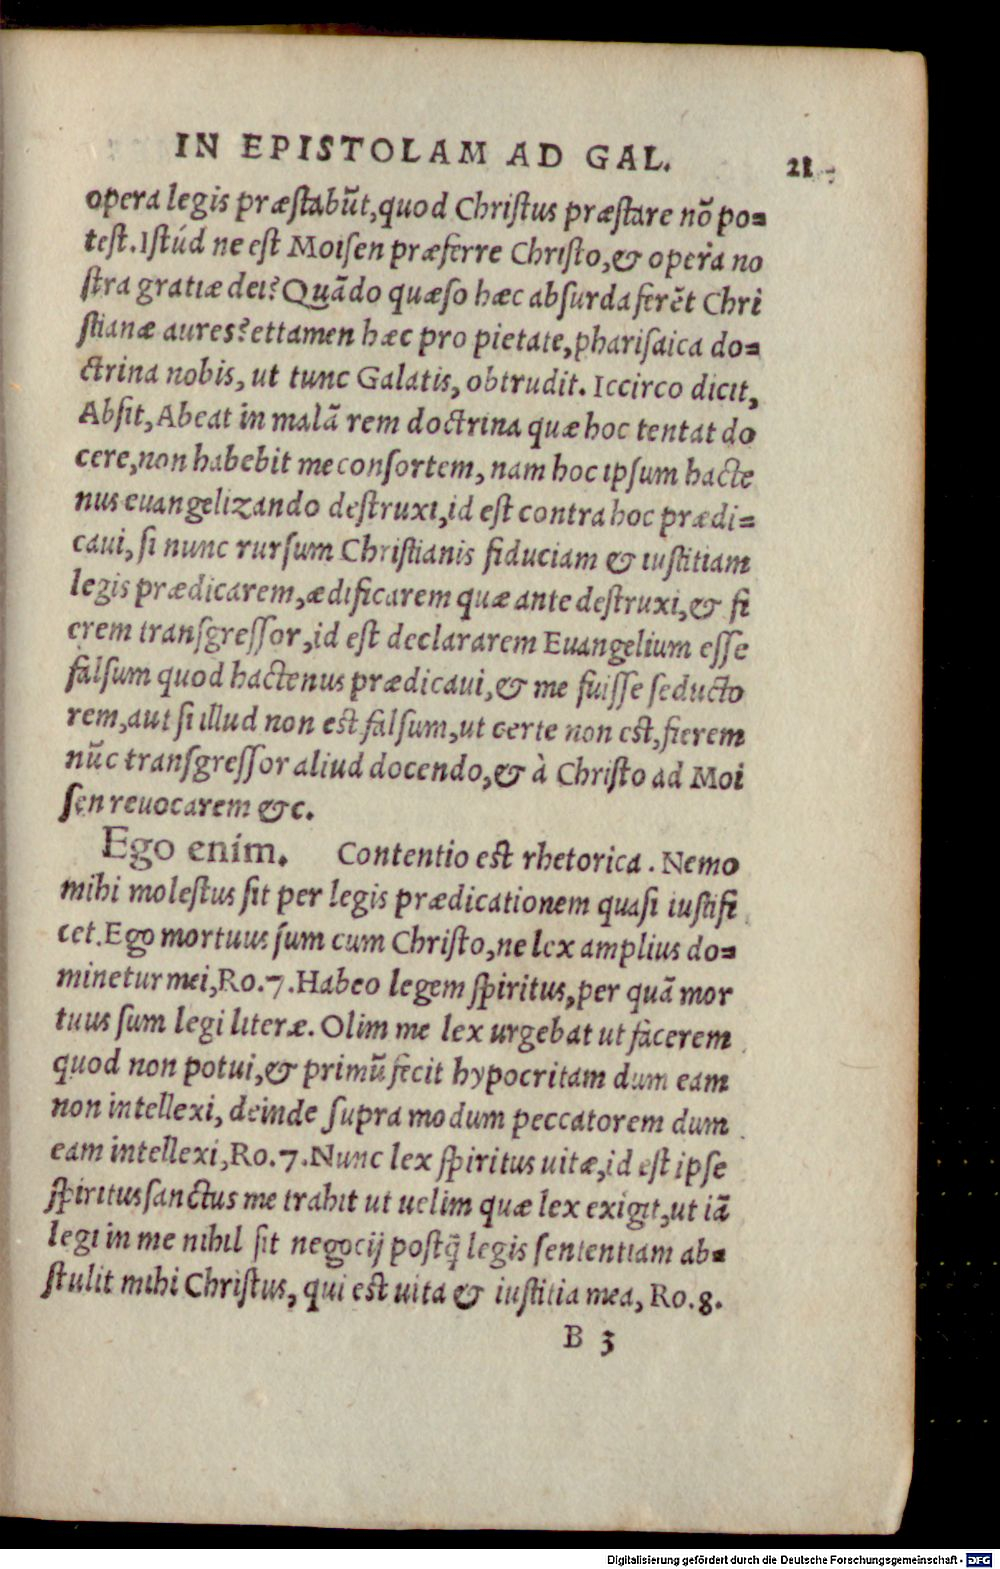 IN EPISTOLAM AD GAL. 21
opera legis præstabūt, quod Christus præstare nō po=
test. Istúd ne est Moisen præferre Christo, & opera no
stra gratiæ dei? Quādo quæso hæc absurda ferēt Chri
stianæ aures? ettamen hæc pro pietate, pharisaica do=
ctrina nobis, ut tunc Galatis, obtrudit. Iccirco dicit,
Absit, Abeat in malā rem doctrina quæ hoc tentat do
cere, non habebit me consortem, nam hoc ipsum hacte
nus euangelizando destruxi, id est contra hoc prædi=
caui, si nunc rursum Christianis fiduciam & iustitiam
legis prædicarem, ædificarem quæ ante destruxi, & fi
erem transgressor, id est declararem Euangelium esse
falsum quod hactenus prædicaui, & me fuisse seducto
rem, aut si illud non est falsum, ut certe non est, fierem
nūc transgressor aliud docendo, & à Christo ad Moi
sen reuocarem &c.
Ego enim. Contentio est rhetorica. Nemo
mihi molestus sit per legis prædicationem quasi iustifi
cet. Ego mortuus sum cum Christo, ne lex amplius do=
minetur mei, Ro. 7. Habeo legem spiritus, per quā mor
tuus sum legi literæ. Olim me lex urgebat ut facerem
quod non potui, & primū fecit hypocritam dum eam
non intellexi, deinde supra modum peccatorem dum
eam intellexi, Ro. 7. Nunc lex spiritus uitæ, id est ipse
spiritus sanctus me trahit ut uelim quæ lex exigit, ut iā
legi in me nihil sit negocij postq̄ legis sententiam ab=
stulit mihi Christus, qui est uita & iustitia mea, Ro. 8.
B 3
Digitalisierung gefördert durch die Deutsche Forschungsgemeinschaft - DFG